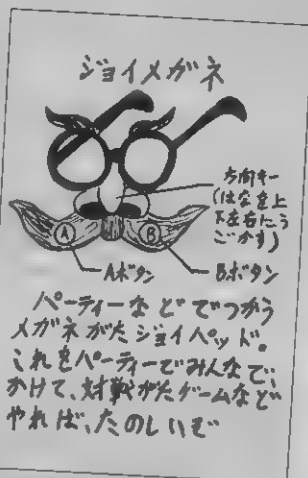 ジョイメガネ
方向キー
(はなを上
下左右にう
ごかす)
Ⓐ
Ⓑ
Aボタン
Bボタン
パーティーなどでつかう
メガネがたジョイパッド。
これをパーティーでみんなで、
かけて、対戦がたゲームなど
やれば、たのしいぞ